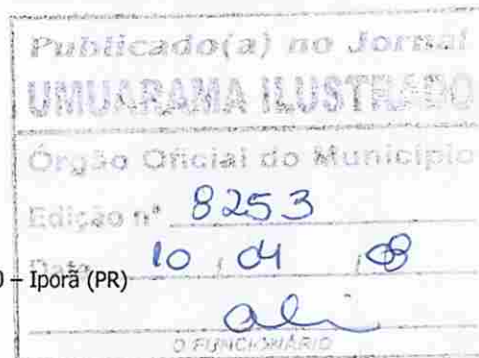 Publicado(a) no Jornal
UMUARAMA ILUSTRADO
Órgão Oficial do Município
Edição nº 8253
Data 10, 04, 08
0 – Iporã (PR)
O FUNCIONÁRIO